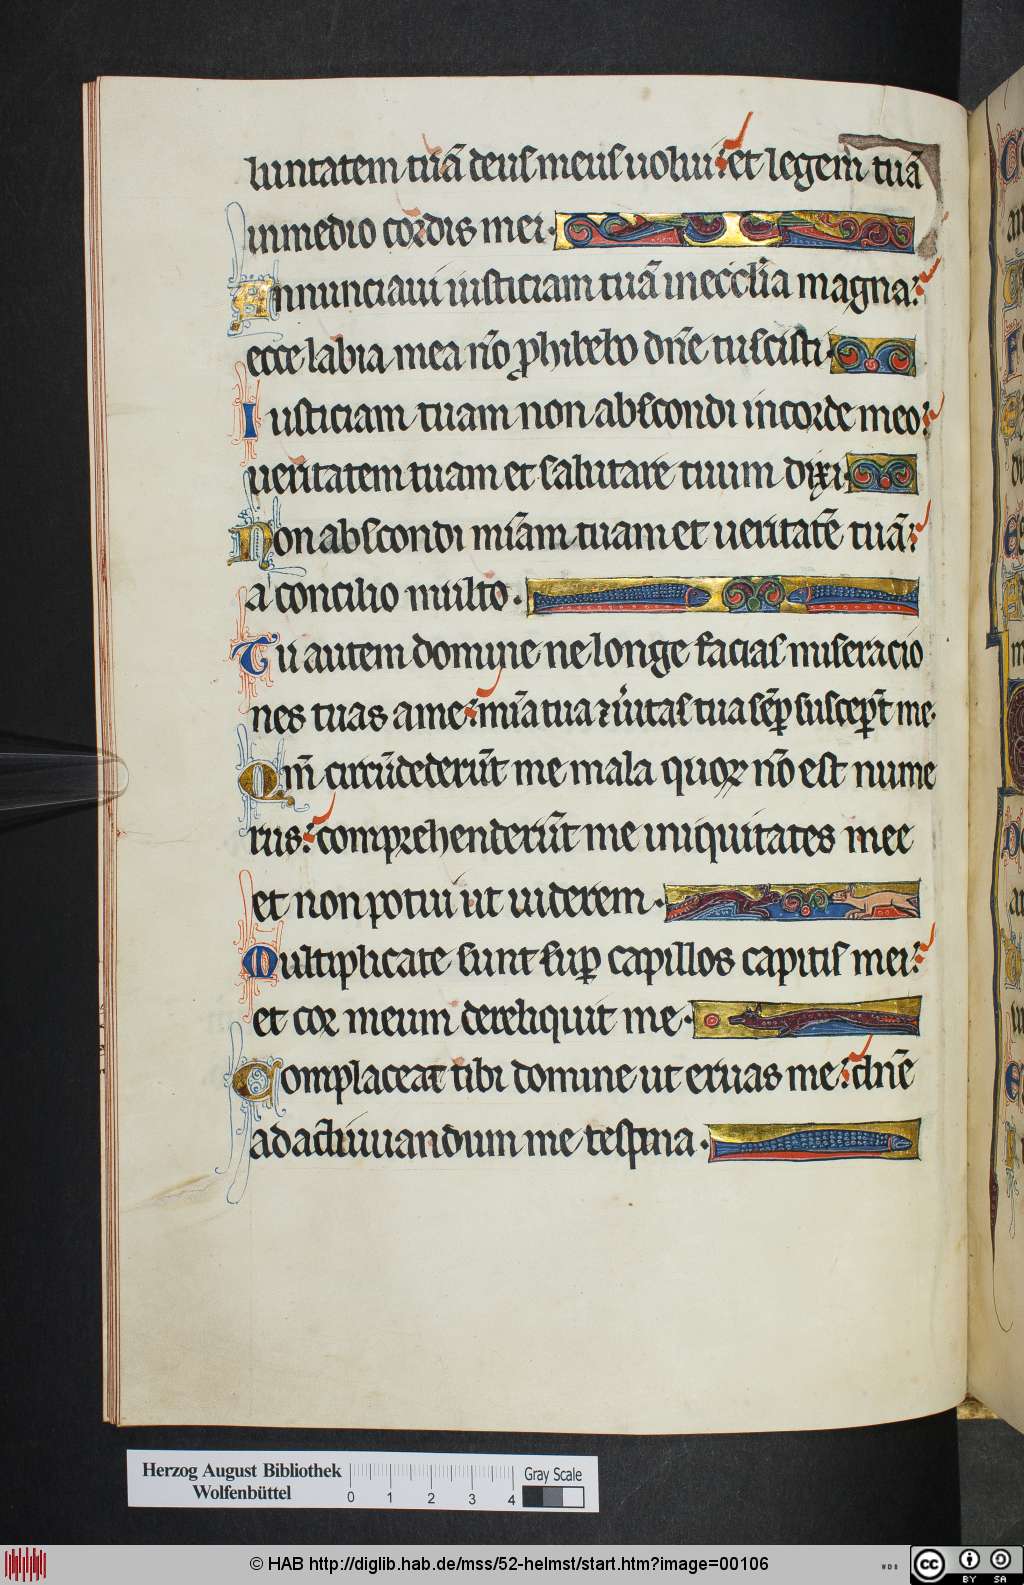 luntatem tuā deus meus uolui: et legem tuā
in medio cordis mei.
Annunciaui iusticiam tuā in ecclīa magna:
ecce labia mea nō prohibebo dn̄e tu scisti.
Iusticiam tuam non abscondi in corde meo:
ueritatem tuam et salutare tuum dixi.
Non abscondi mīam tuam et ueritatē tuā:
a concilio multo.
Tu autem domine ne longe facias miseracio
nes tuas a me: mīa tua ⁊ ūitas tua sēp suscep̄t me.
Qm̄ circūdederūt me mala quoꝝ nō est nume
rus: comprehenderūt me iniquitates mee
et non potui ut uiderem.
Multiplicate sunt suꝑ capillos capitis mei:
et cor meum dereliquit me.
Complaceat tibi domine ut eruas me: dn̄e
ad adiuuandum me respina.
Herzog August Bibliothek
Wolfenbüttel
0 1 2 3 4
Gray Scale
© HAB http://diglib.hab.de/mss/52-helmst/start.htm?image=00106
WDB
CC BY SA